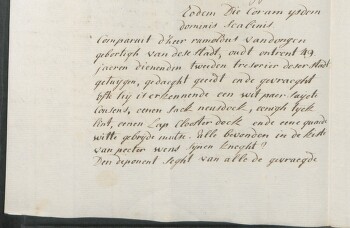 Eodem Die Coram ijsdem
dominis Scabinis
Compareert d'heer rumoldus vandongen
geboortigh van dese stadt, oudt ontrent 49
jaeren dienenden tweeden tresorier deser stadt
getuygen, gedaeght geeidt ende gevraeght
oft hij is erkennende een wit paer sayette
Cousens, eenen sack neusdoeck, eenigh tyck
lint, eenen Lap Cloosterdoek ende eene quaede
witte gebreyde mutse. Alle bevonden in de kiste
van peeter wens synen knecht?
Den deponent seght van alle de gevraegde